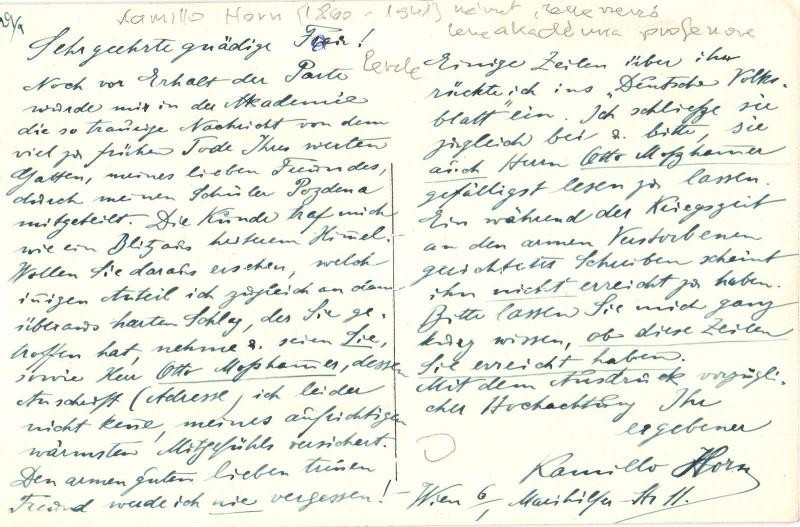 Kamillo Horn (1860 - 1941) német zeneszerző
zeneakadémia professora
Sehrgeehrte gnädige Frau!
Noch vor Erhalt der Parte
wurde mir in der Akademie
die so traurige Nachricht von dem
viel zu frühen Tode Ihres werten
Gatten, meines lieben Freundes,
durch meinen Schüler Pozdena
mitgeteilt. Die Kunde traf mich
wie ein Blitz aus heiterem Himel.
Wollen Sie daraus ersehen, welch
inigen Anteil ich zugleich an dem
überaus harten Schlag, der Sie ge-
troffen hat, nehme u. seien Sie,
sowie Herr Otto Moßhamer, dessen
Anschrift (Adresse) ich leider
nicht kene, meines aufrichtigen
wärmsten Mitgefühls versichert.
Den armen guten lieben treuen
Freund werde ich nie vergessen!
Einige Zeilen über ihn
rückte ich ins "Deutsche Volks-
blatt" ein. Ich schließe sie
zugleich bei u. bitte, sie
auch Herrn Otto Moßhamer
gefälligst lesen zu lassen.
Ein während der Kriegszeit
an den armen Verstorbenen
gerichtetes Schreiben scheint
ihn nicht erreicht zu haben.
Bitte lassen Sie mich ganz
kurz wissen, ob diese Zeilen
Sie erreicht haben.
Mit dem Ausdruck vorzügli-
cher Hochachtung Ihr
ergebener
Kamillo Horn
Wien 6, Mariahilfer Str 11.